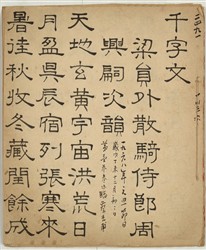 千字文
梁員外散騎侍郎周
興嗣次韻
天地玄黃宇宙洪荒日
月盈昃辰宿列張寒來
暑往秋收冬藏閏餘成